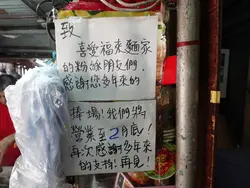 致
喜愛福來麵家
的粉絲朋友們,
感謝您多年來的
捧場!我們將
營業至2月底!
再次感謝多年來
的支持!再見!